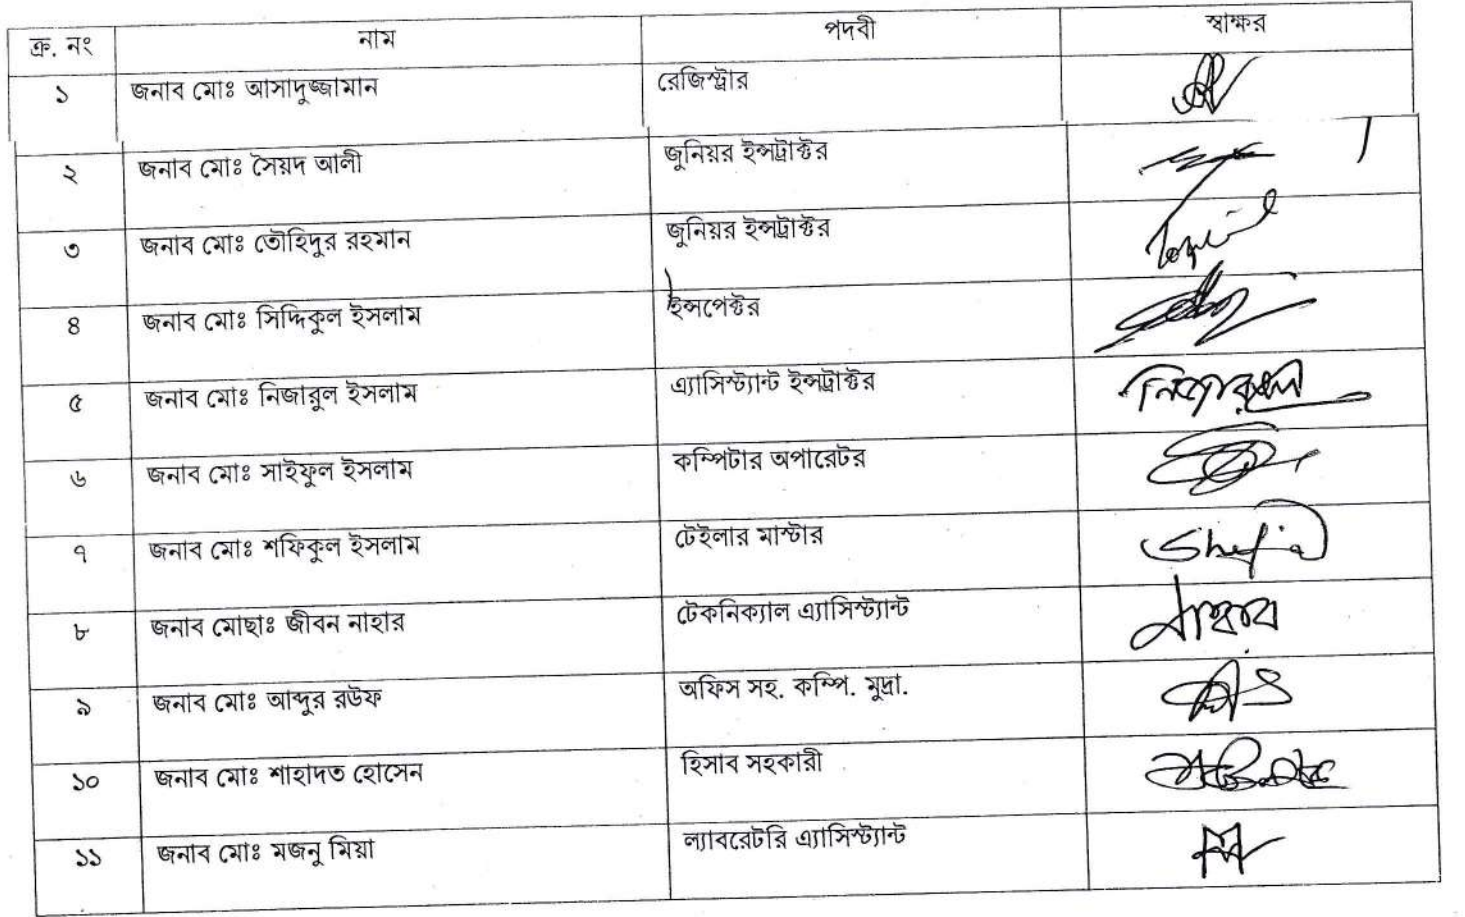 ক্র. নং নাম পদবী স্বাক্ষর
১ জনাব মোঃ আসাদুজ্জামান রেজিস্ট্রার
২ জনাব মোঃ সৈয়দ আলী জুনিয়র ইন্সট্রাক্টর
৩ জনাব মোঃ তৌহিদুর রহমান জুনিয়র ইন্সট্রাক্টর
৪ জনাব মোঃ সিদ্দিকুল ইসলাম ইন্সপেক্টর
৫ জনাব মোঃ নিজারুল ইসলাম এ্যাসিস্ট্যান্ট ইন্সট্রাক্টর নিজারুল
৬ জনাব মোঃ সাইফুল ইসলাম কম্পিটার অপারেটর
৭ জনাব মোঃ শফিকুল ইসলাম টেইলার মাস্টার
৮ জনাব মোছাঃ জীবন নাহার টেকনিক্যাল এ্যাসিস্ট্যান্ট
৯ জনাব মোঃ আব্দুর রউফ অফিস সহ. কম্পি. মুদ্রা.
১০ জনাব মোঃ শাহাদত হোসেন হিসাব সহকারী
১১ জনাব মোঃ মজনু মিয়া ল্যাবরেটরি এ্যাসিস্ট্যান্ট